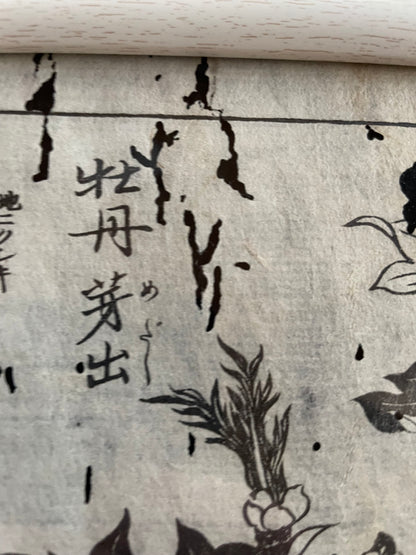 牡丹芽出
めだし